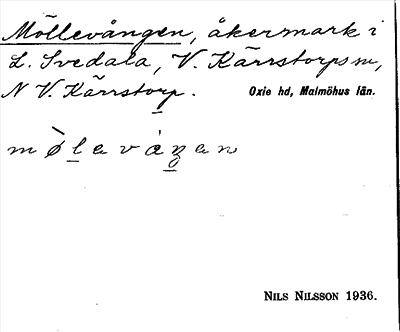 Möllevången, åkermark i
L. Svedala, V. Kärrstorps sn,
N V. Kärrstorp. Oxie hd, Malmöhus län.
NILS NILSSON 1936.